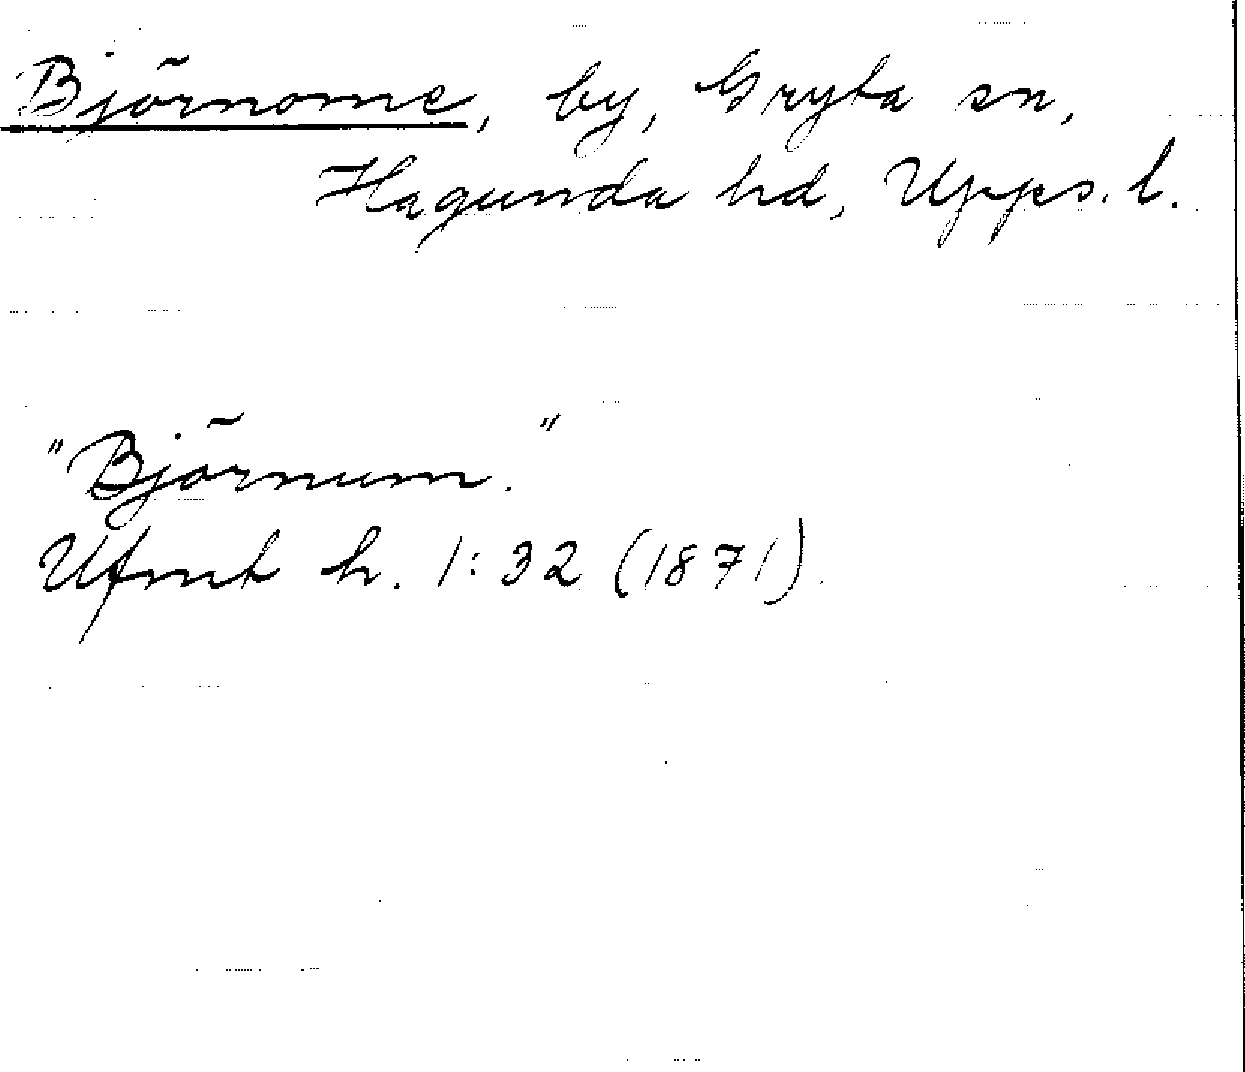 Björnome, by, Gryta sn,
Hagunda hd, Upps. l.
"Björnum."
Ufmt h. 1:32 (1871).